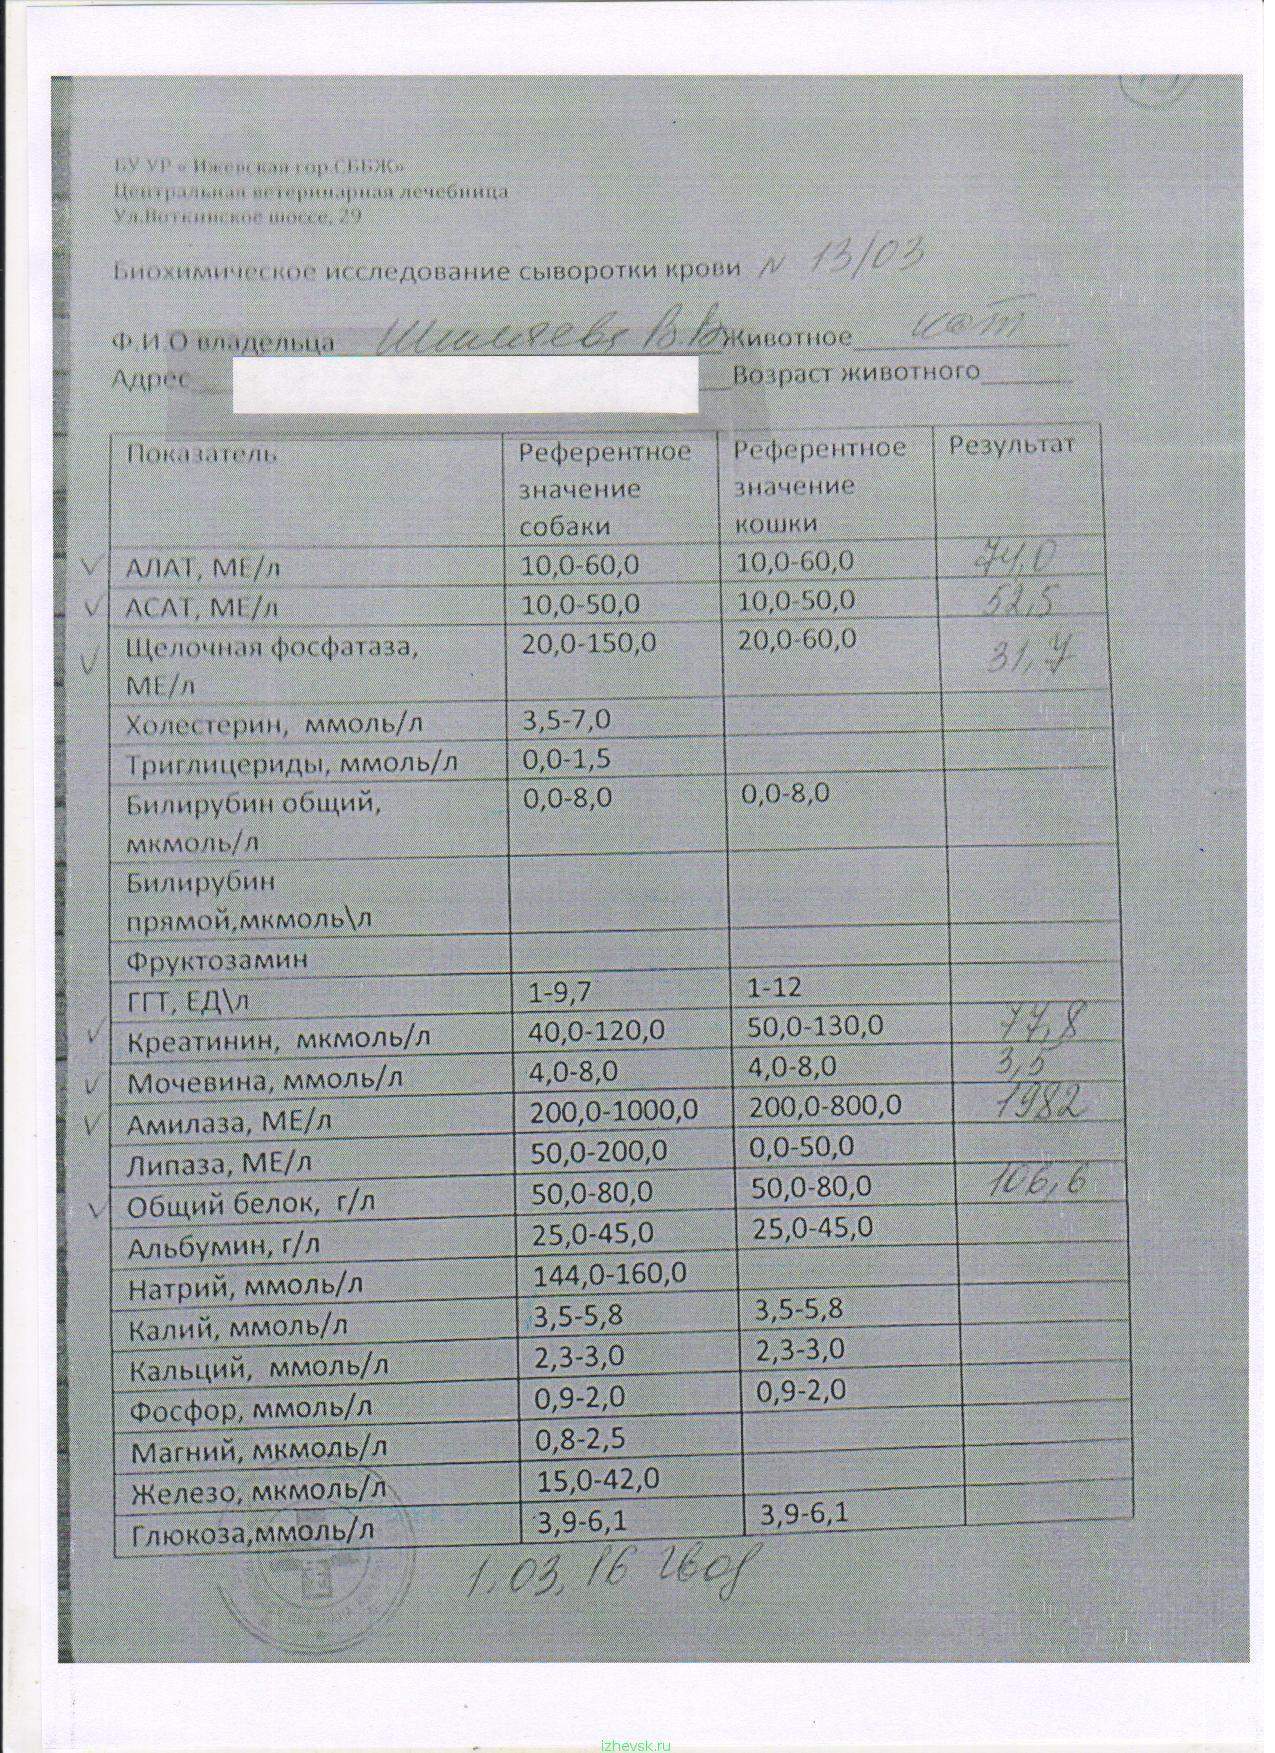 БУ УР « Ижевская гор.СББЖ»
Центральная ветеринарная лечебница
Ул.Воткинское шоссе, 29
Биохимическое исследование сыворотки крови № 13/03
Ф.И.О владельца В.В. Животное кот
Адрес Возраст животного
Показатель Референтное значение собаки Референтное значение кошки Результат
АЛАТ, МЕ/л 10,0-60,0 10,0-60,0 74,0
АСАТ, МЕ/л 10,0-50,0 10,0-50,0 52,5
Щелочная фосфатаза, МЕ/л 20,0-150,0 20,0-60,0 31,7
Холестерин, ммоль/л 3,5-7,0
Триглицериды, ммоль/л 0,0-1,5
Билирубин общий, мкмоль/л 0,0-8,0 0,0-8,0
Билирубин прямой,мкмоль\л
Фруктозамин
ГГТ, ЕД\л 1-9,7 1-12
Креатинин, мкмоль/л 40,0-120,0 50,0-130,0 77,8
Мочевина, ммоль/л 4,0-8,0 4,0-8,0 3,5
Амилаза, МЕ/л 200,0-1000,0 200,0-800,0 1982
Липаза, МЕ/л 50,0-200,0 0,0-50,0
Общий белок, г/л 50,0-80,0 50,0-80,0 106,6
Альбумин, г/л 25,0-45,0 25,0-45,0
Натрий, ммоль/л 144,0-160,0
Калий, ммоль/л 3,5-5,8 3,5-5,8
Кальций, ммоль/л 2,3-3,0 2,3-3,0
Фосфор, ммоль/л 0,9-2,0 0,9-2,0
Магний, мкмоль/л 0,8-2,5
Железо, мкмоль/л 15,0-42,0
Глюкоза,ммоль/л 3,9-6,1 3,9-6,1
1.03.16
izhevsk.ru